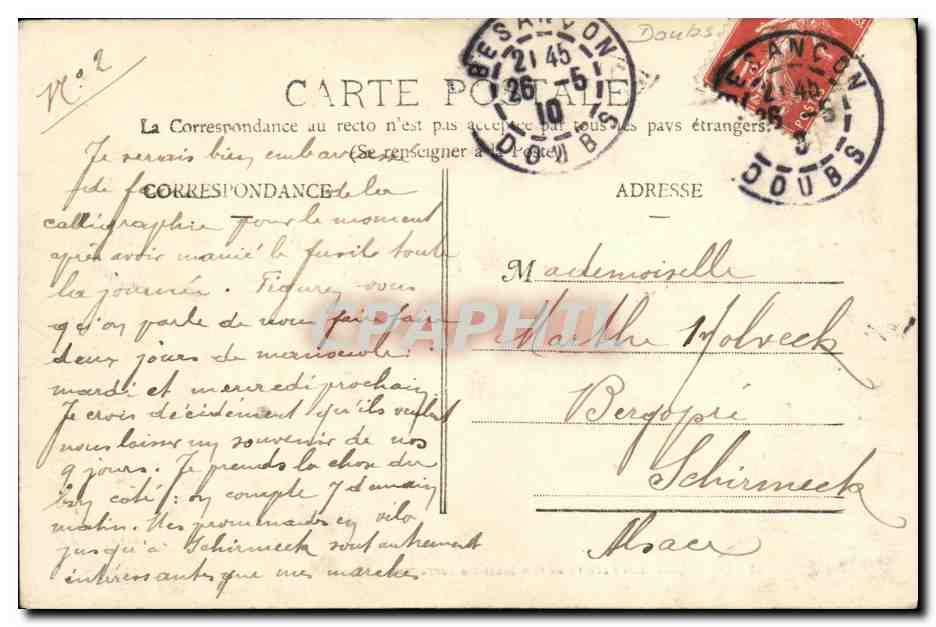 N.º 2
Doubs
BESANÇON
21 45
26 - 5
10
DOUBS
BESANÇON
21 45
26 - 5
DOUBS
POSTES
CARTE POSTALE
La Correspondance au recto n'est pas acceptée par tous les pays étrangers.
(Se renseigner à la Poste)
CORRESPONDANCE
ADRESSE
Je serais bien embarassé
de faire de la
calligraphie pour le moment
après avoir manié le fusil toute
la journée. Figurez-vous
qu'on parle de nous faire faire
deux jours de manœuvre
mardi et mercredi prochain
Je crois décidément qu'ils veulent
nous laisser un souvenir de nos
9 jours. Je prends la chose du
bon côté : on compte 7 demain
matin. Mes promenades en vélo
jusqu'à Schirmeck sont autrement
intéressantes que mes marches
Mademoiselle
Marthe Holveck
Bergopré
Schirmeck
Alsace
CPAPHIL